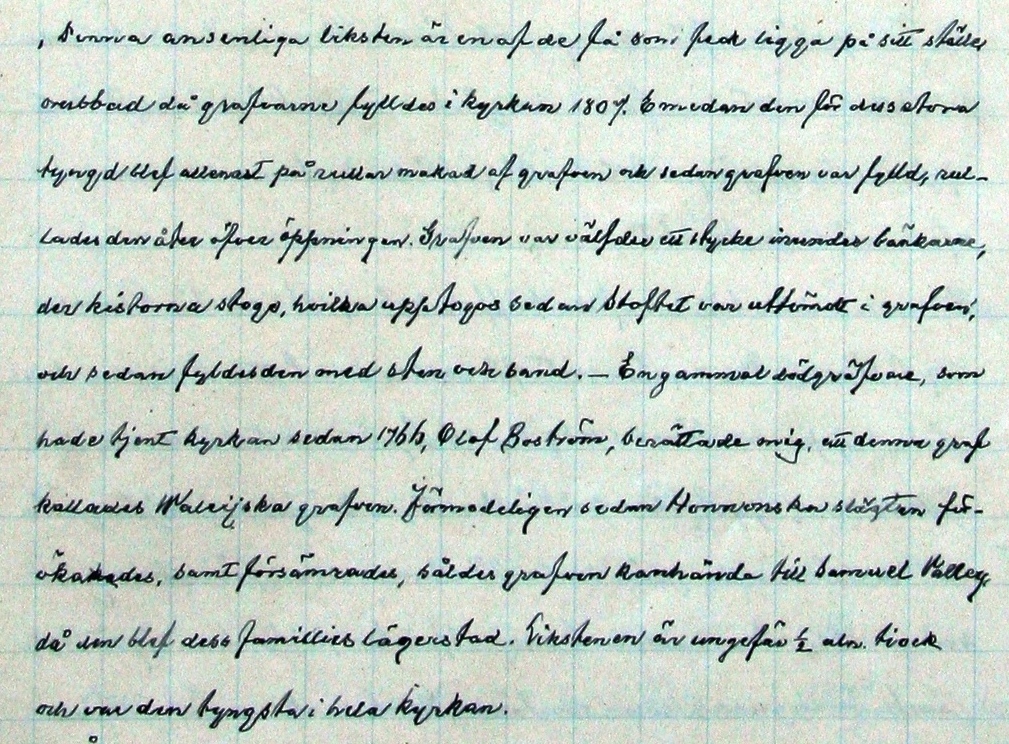 , Denna ansenliga liksten är en af de få som fick ligga på sitt ställe
orubbad då grafvarne fylldes i kyrkan 1807. Emedan den för dess stora
tyngd blef allenast på rullar makad af grafven och sedan grafven var fylld, rul-
lades den åter öfver öppningen. Grafven var välfder ett stycke inunder bänkarne,
der kistorna stogo, hvilka upptogos sedan Stoftet var uttömdt i grafven,
och sedan fyldes den med sten och sand. — En gammal dödgräfvare, som
hade tjent kyrkan sedan 1766, Olof Boström, berättade mig, att denna graf
kallades Walleijska grafven. Förmodeligen sedan slägten för-
ökades, samt försämrades, såldes grafven kanhända till Samuel Valley
då den blef dess families lägerstad. Likstenen är ungefär ½ aln. tjock
och var den tyngsta i hela kyrkan.